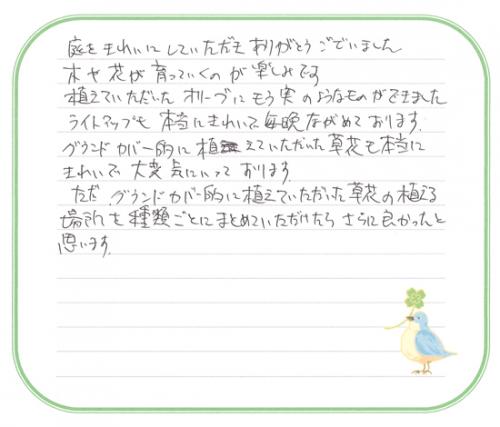 庭をきれいにしていただき ありがとうございました
木や花が育っていくのが楽しみです
植えていただいた オリーブにもう実のようなものができました
ライトアップも 本当にきれいで毎晩ながめております。
グランドカバー的に植えていただいた草花も本当に
きれいで 大変気にいっております。
ただ、グランドカバー的に植えていただいた草花の植える
場所を種類ごとにまとめていただけたら さらに良かったと
思います。